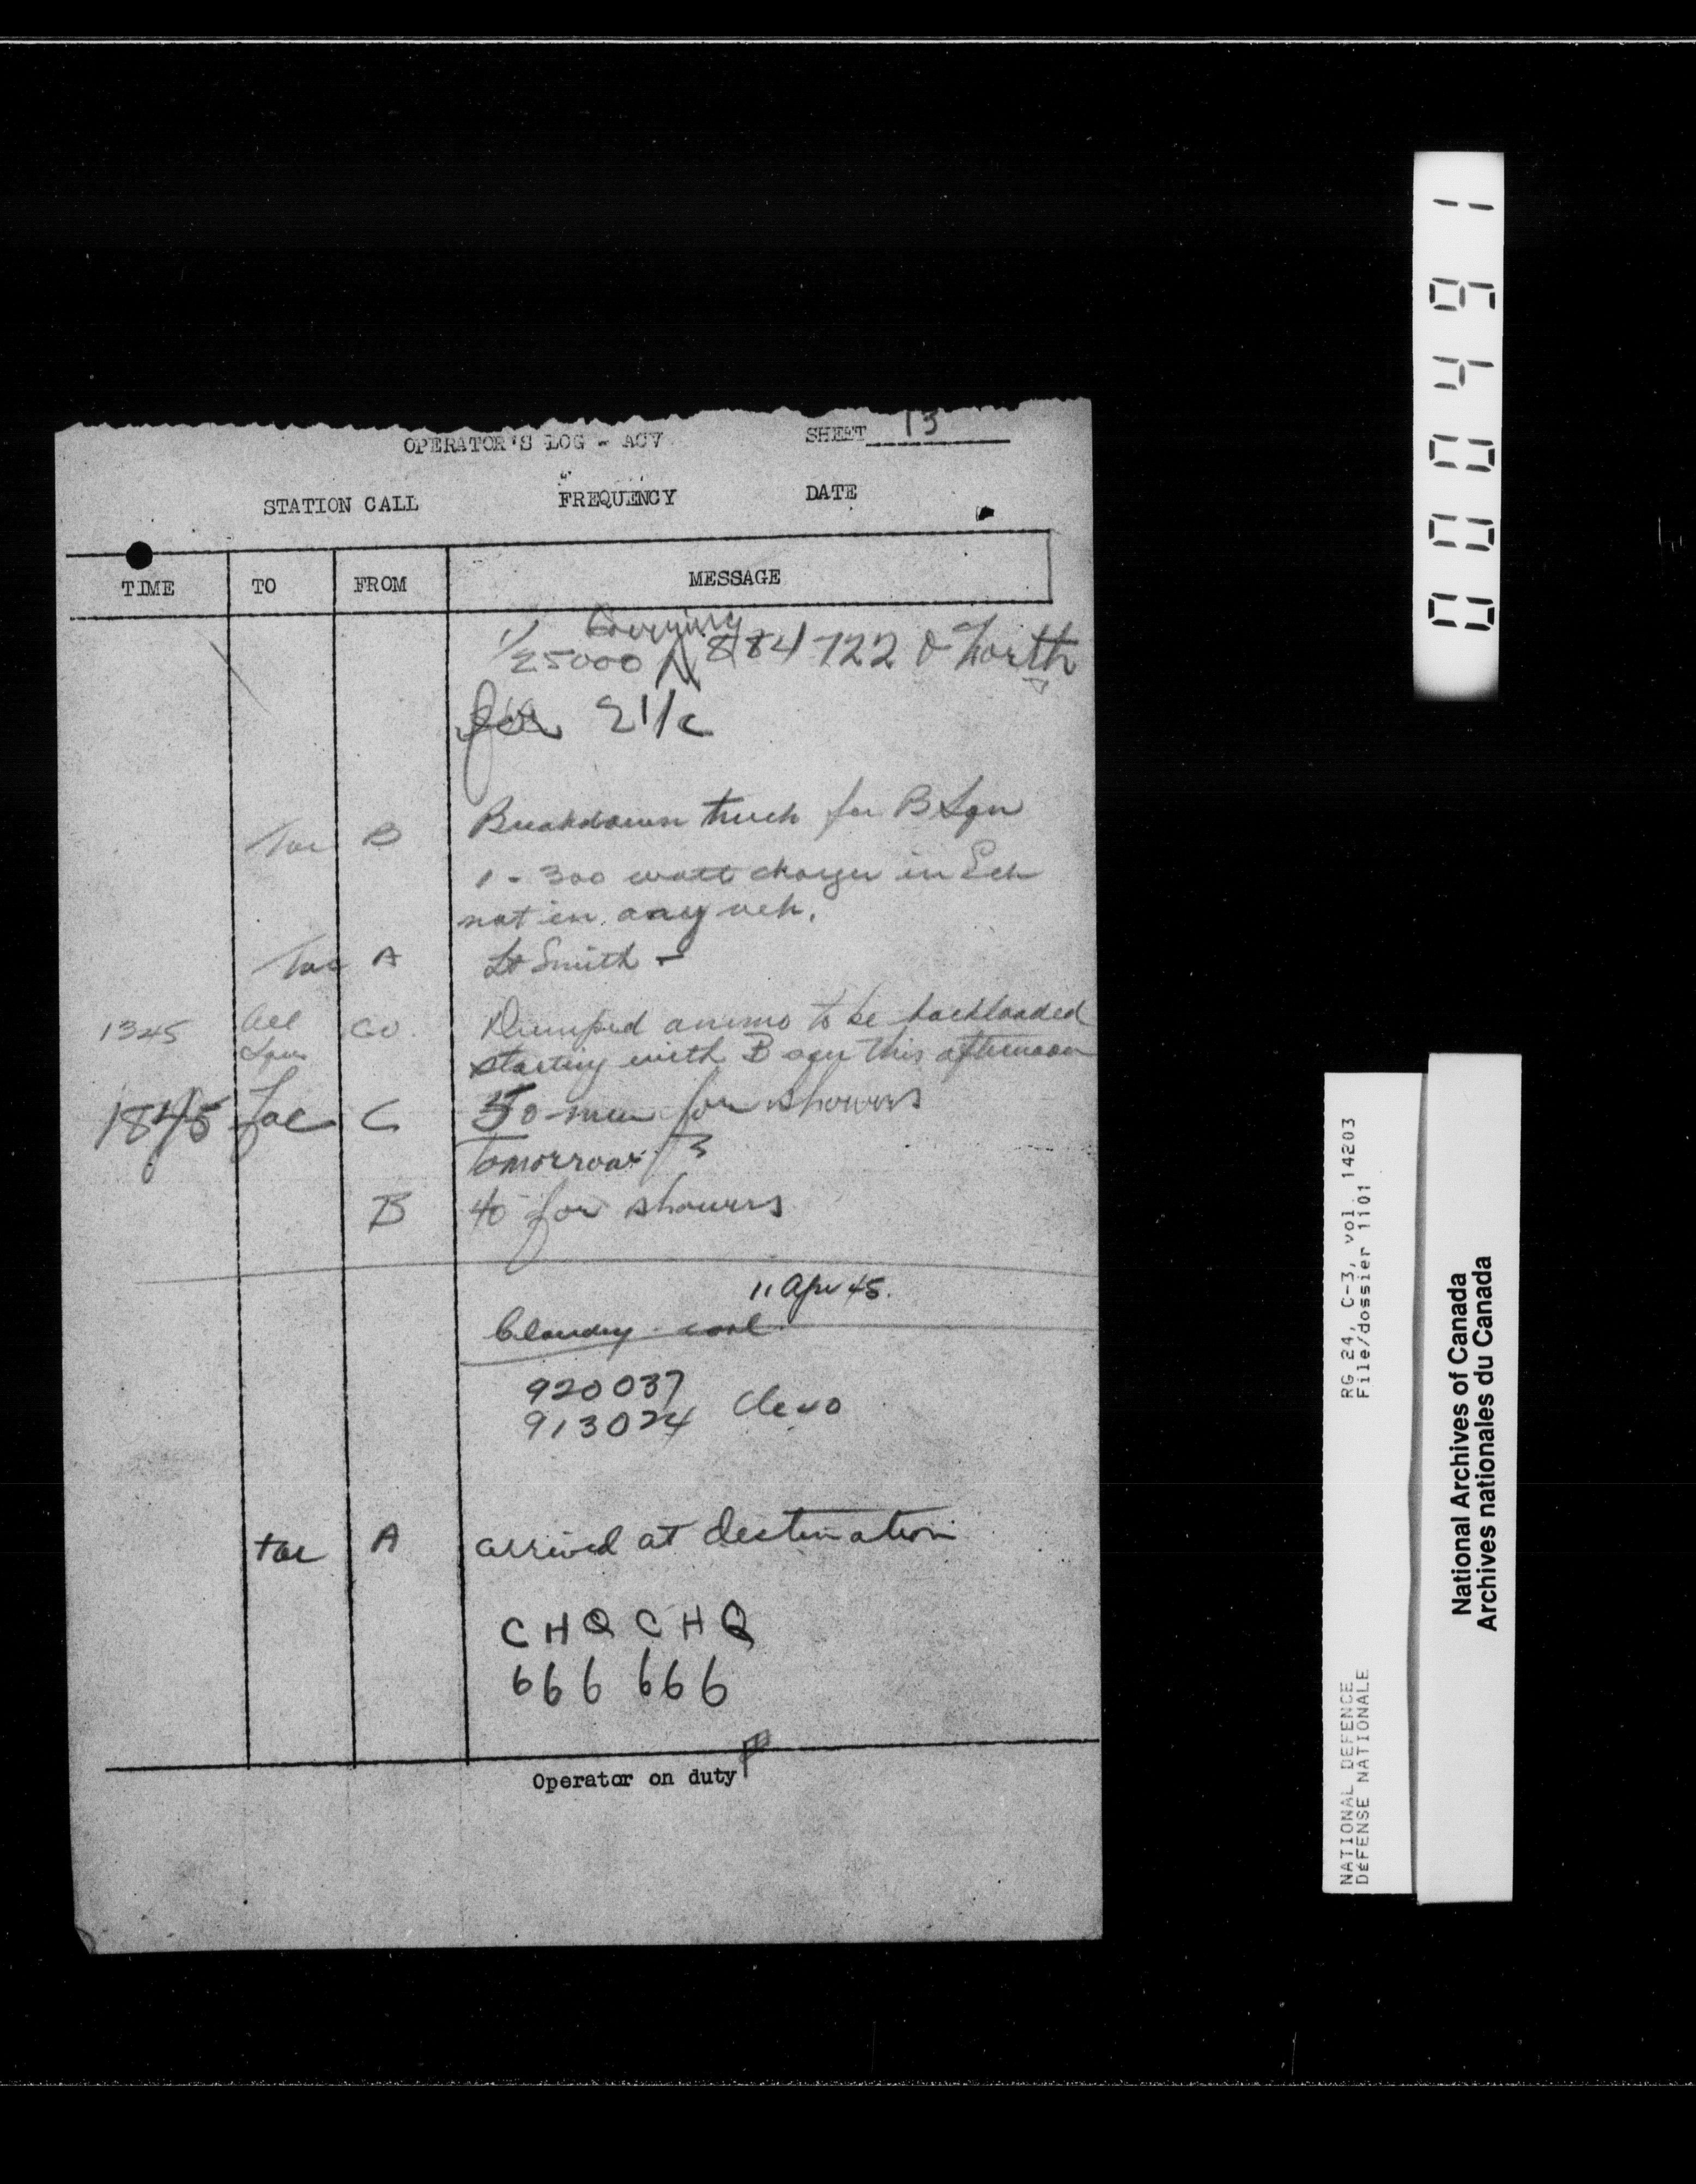 OPERATOR'S LOG - ACV SHEET 13
STATION CALL FREQUENCY DATE
TIME TO FROM MESSAGE
Covering
1/25000 884 722 & North
for 21/c
Tac B Breakdown truck for B Sqn
1 - 300 watt charger in Ech
not in any veh.
Tac A Lt Smith -
1345 All Sqns CO. Dumped ammo to be backloaded
starting with B sqn this afternoon
1845 Tac C 50 men for showers
tomorrow
B 40 for showers
11 Apr 45.
Cloudy - cool
920037
913024 Clevo
tac A arrived at destination
C H Q C H Q
6 6 6 6 6 6
Operator on duty
000491
RG 24, C-3, vol. 14203
File/dossier 1101
NATIONAL DEFENCE
DÉFENSE NATIONALE
National Archives of Canada
Archives nationales du Canada